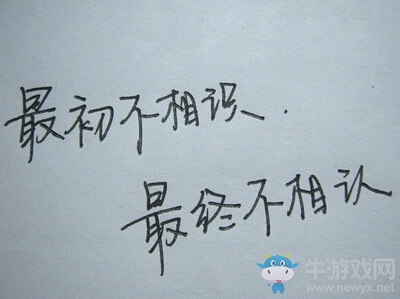 最初不相识.
最终不相认
牛游戏网
www.newyx.net